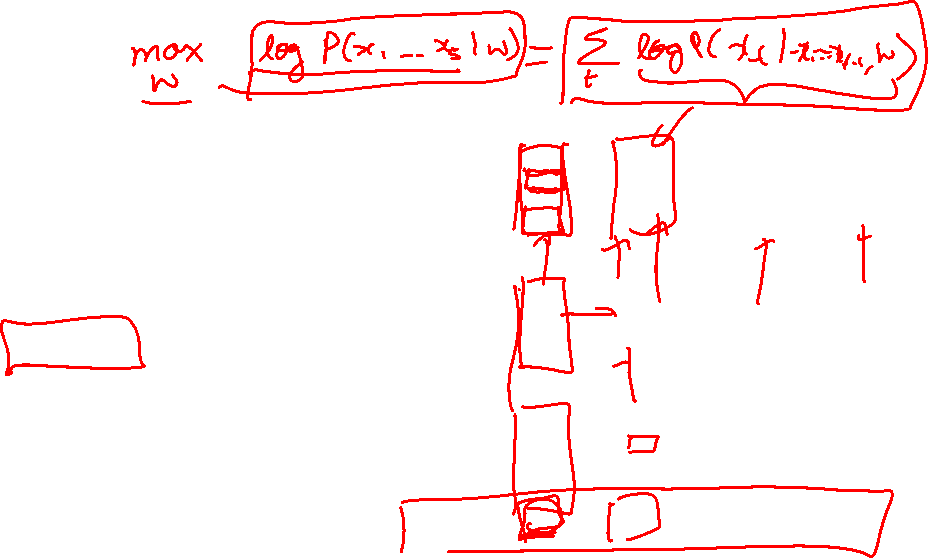 max log P(x₁ -- x₅ | w) = Σ log P(x_t | x₁ -- x_{t-1}, w)
w t